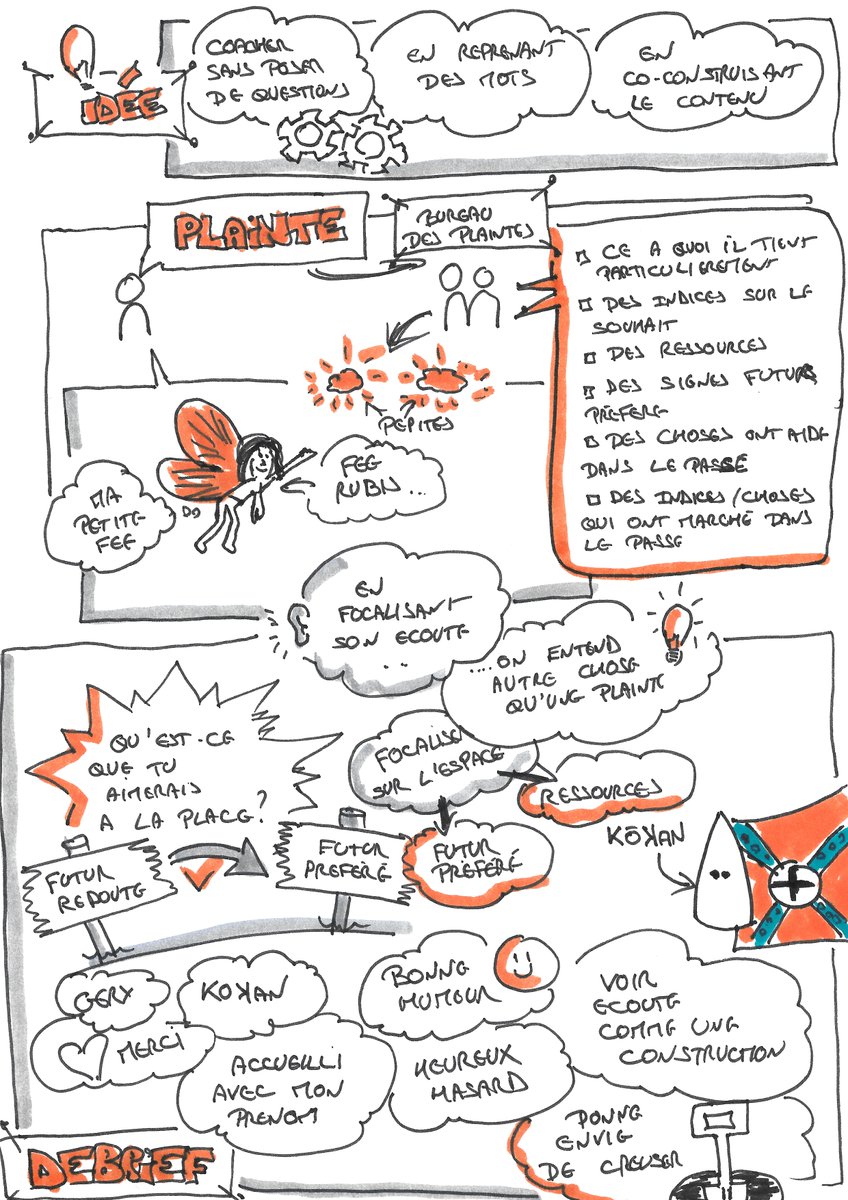 IDÉE
COACHER
SANS POSER
DE QUESTIONS
EN REPRENANT
DES MOTS
EN
CO-CONSTRUISANT
LE CONTENU
PLAINTE
BUREAU
DES PLAINTES
CE A QUOI IL TIENT
PARTICULIEREMENT
DES INDICES SUR LE
SOUHAIT
DES RESSOURCES
DES SIGNES FUTUR
PREFERE
DES CHOSES ONT AIDE
DANS LE PASSÉ
DES INDICES/CHOSES
QUI ONT MARCHÉ DANS
LE PASSE
PEPITES
MA
PETITE-
FEE
FEE
RUBIS...
EN
FOCALISANT
SON ECOUTE
..
....ON ENTEND
AUTRE CHOSE
QU'UNE PLAINTE
QU'EST-CE
QUE TU
AIMERAIS
A LA PLACE?
FOCALISE
SUR L'ESPACE
RESSOURCES
FUTUR
PRÉFÉRÉ
FUTUR
REDOUTE
FUTUR
PREFERE
KŌKAN
GERY
KOKAN
MERCI
BONNE
HUMEUR
ACCUEILLI
AVEC MON
PRENOM
HEUREUX
HASARD
VOIR
ECOUTE
COMME UNE
CONSTRUCTION
DONNE
ENVIE
DE CREUSER
DEBRIEF